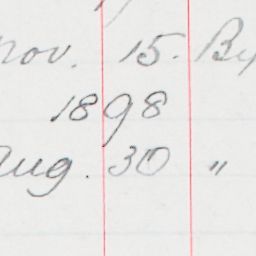 Nov. 15. By
1898
Aug. 30 "